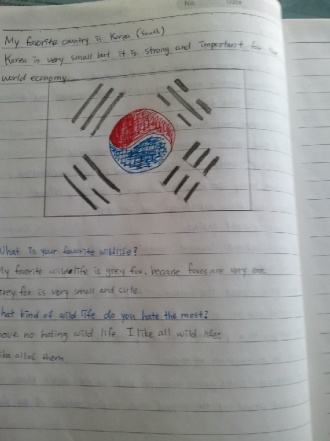 No. Date
My favorite country is Korea (South)
Korea is very small but it is strong and important for
world economy
What is your favorite wildlife?
My favorite wildlife is grey fox, because foxes are very
grey fox is very small and cute.
What kind of wild life do you hate the most?
have no hating wild life. I like all wild
like all of them